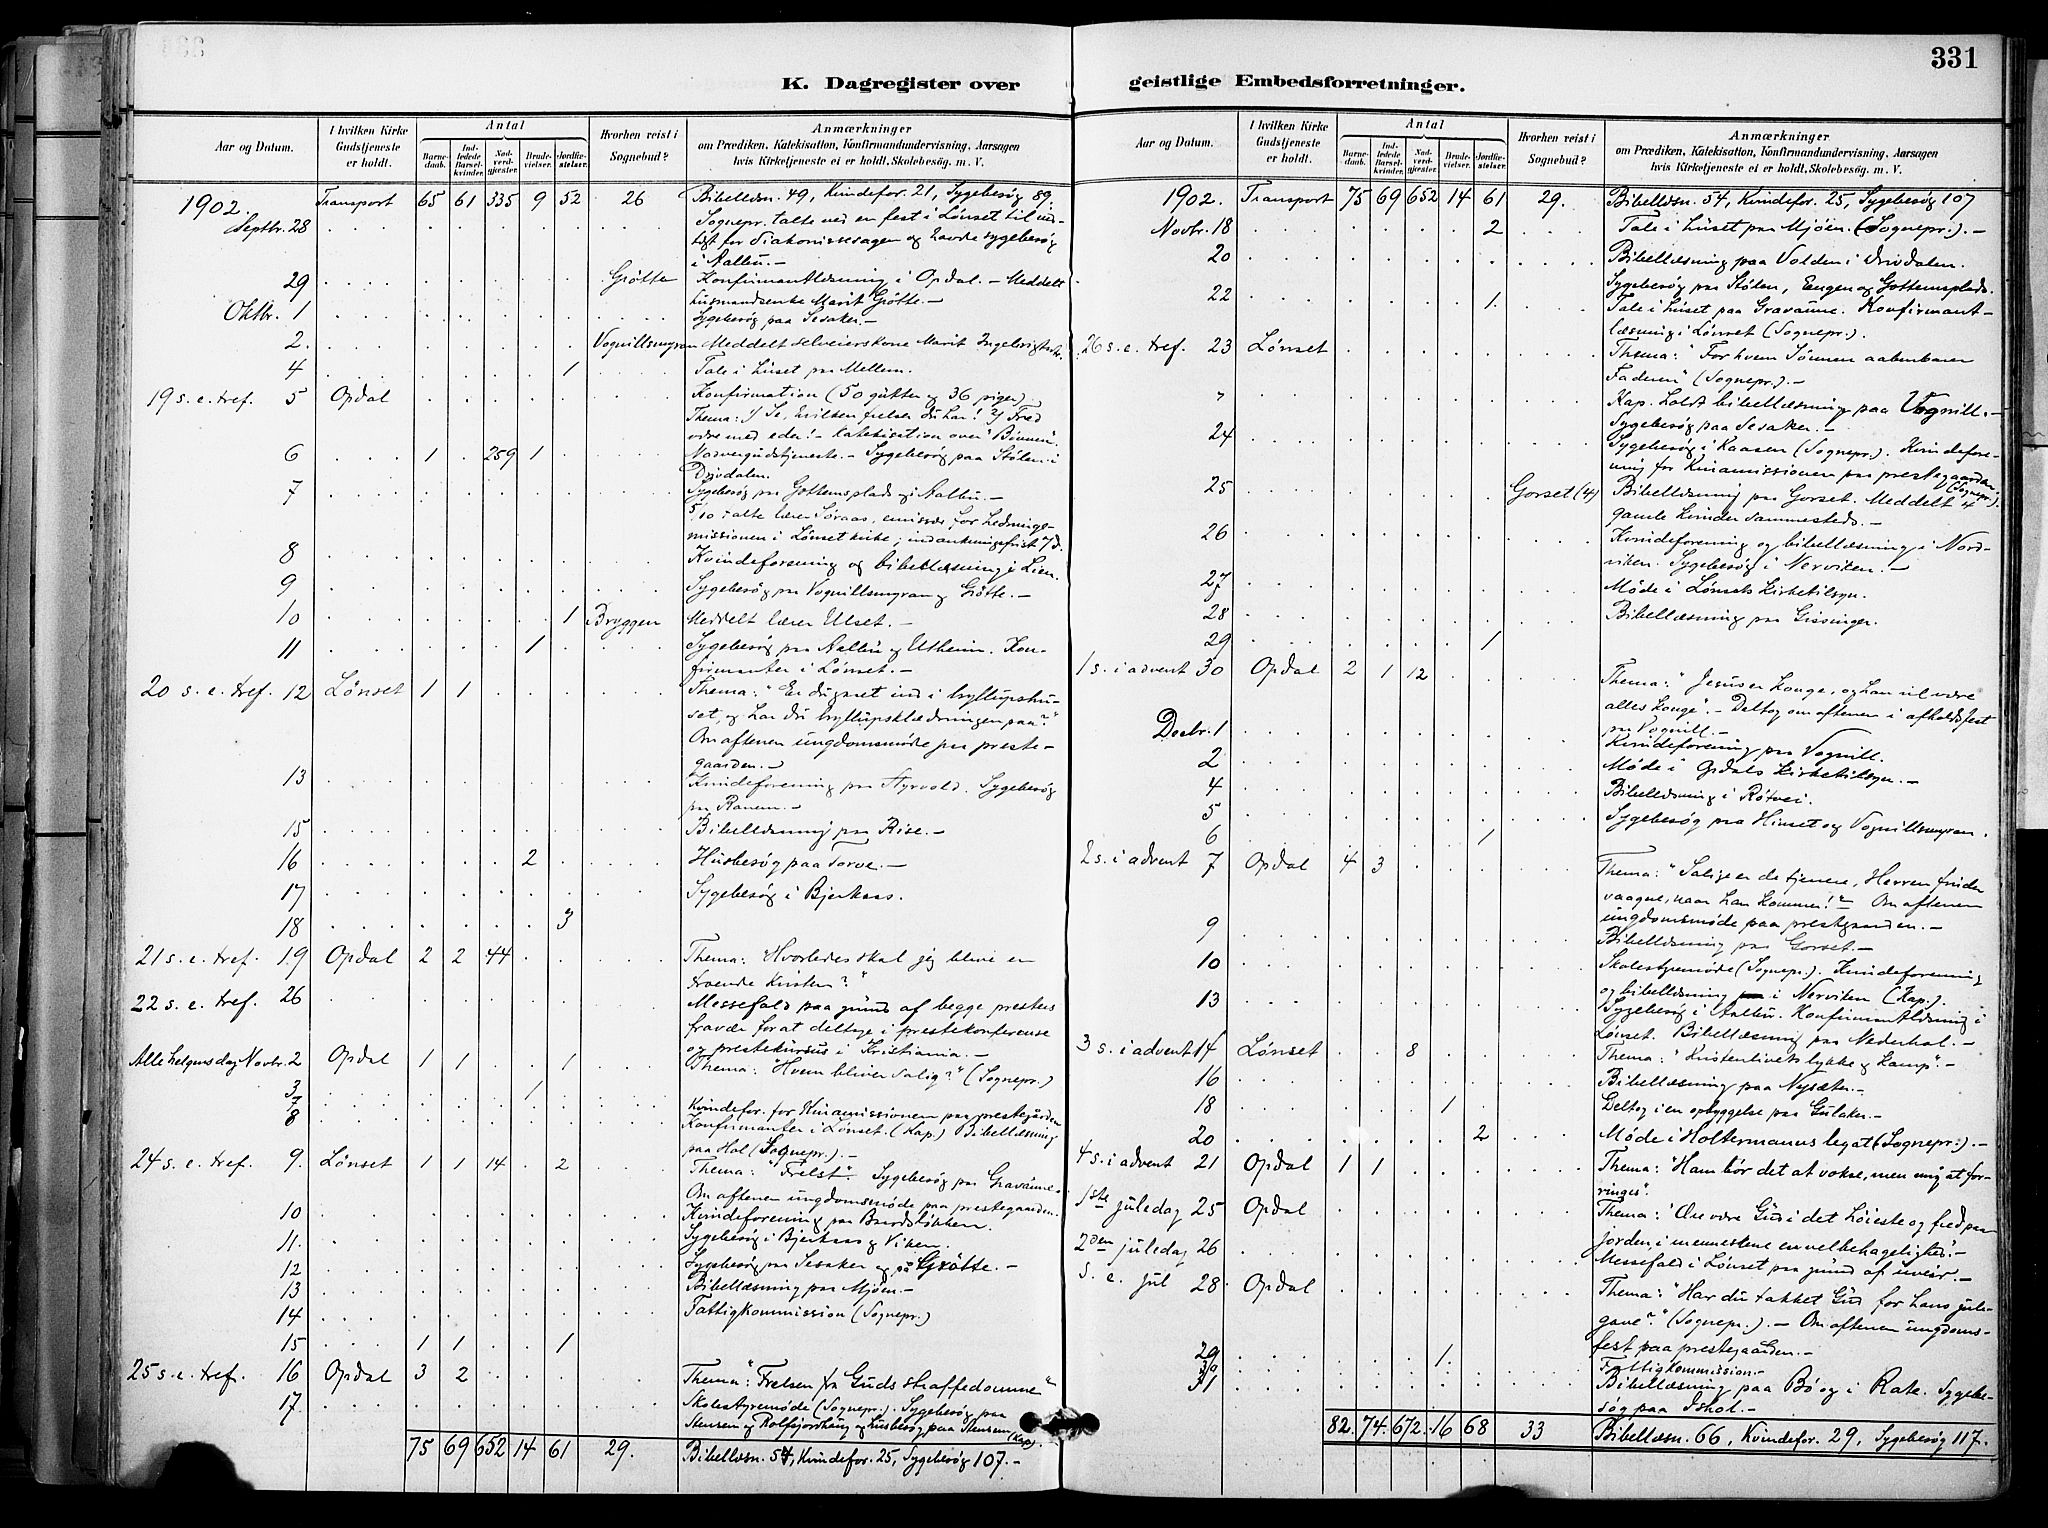 331
K. Dagregister over
Aar og Datum.
I hvilken Kirke Gudstjeneste er holdt.
Antal
Barnedaab.
Indledede Barselkvinder.
Nadverdgjester.
Brudevielser.
Jordfæstelser.
Hvorhen reist i Sognebud?
Anmærkninger
om Prædiken, Katekisation, Konfirmandundervisning, Aarsagen
hvis Kirketjeneste ei er holdt, Skolebesøg. m. V.
1902. Transport 65 61 335 9 52 26 Bibellæsn. 49, Kvindefor. 21, Sygebesøg 89.
Septbr. 28 Sognepr. talte ved en fest i Lønset til ind-
tægt for Diakonissesagen og havde sygebesøg
i Aalbu. —
29 Grøtte Konfirmantlæsning i Opdal. — Meddelt
husmandsenke Marit Grøtte. —
Oktbr. 1 Sygebesøg paa Sesaker. —
2. Vognillsmyran Meddelt selveierskone Marit
4 1 Tale i huset paa Mellem.
19 s. e. tref. 5 Opdal Konfirmation (50 gutter og 36 piger)
Thema: 1) Se, hvilken frelser du har! 2) Fred
være med eder! — Katekisation over "Bønnen".
6 1 259 1 Nadvergudstjeneste. — Sygebesøg paa Stølen i
Drivdalen.
7 Sygebesøg paa Gottemsplads og i Aalbu. —
5/10 talte lærer Søraas, emissær for hedninge-
missionen i Lønset kirke; indankningsfrist 7 d.
8 Kvindeforening og bibellæsning i Lien.
9 Sygebesøg paa Vognillsmyran og Grøtte. —
10 1 Bryggen Meddelt lærer Ulset. —
11 1 Sygebesøg paa Aalbu og Utheim. Kon-
firmanter i Lønset. —
20 s. e. tref. 12 Lønset 1 1 Thema: "Er du gaaet ind i bryllupshu-
set, og har du bryllupsklædningen paa?"
Om aftenen ungdomsmøde paa preste-
gaarden. —
13 Kvindeforening paa Sygebesøg
paa Ranem. —
15 Bibellæsning paa Rise. —
16 2 Husbesøg paa Torve. —
17 Sygebesøg i Bjerkaas.
18 3
21 s. e. tref. 19 Opdal 2 2 44 Thema: "Hvorledes skal jeg blive en
troende kristen?"
22 s. e. tref. 26 Messefald paa grund af begge presters
fravær for at deltage i prestekonferense
og prestekursus i Kristiania. —
Alle helgens dag Novbr. 2 Opdal 1 1 1 Thema: "Hvem bliver salig?" (Sognepr.)
3 1
7 Kvindefor. for Kinamissionen paa prestegaarden
8 Konfirmanter i Lønset. (Kap.) Bibellæsning
paa Hol (Sognepr.). —
24 s. e. tref. 9. Lønset 1 1 14 2 Thema: "Frelst". Sygebesøg paa Gravaune.
Om aftenen ungdomsmøde paa prestegaarden.
10 Kvindeforening paa Baardsløkken.
11. Sygebesøg i Bjerkaas og Viken.
12 Sygebesøg paa Sesaker og på Grøtte. —
13 Bibellæsning paa Mjøen. —
14 Fattigkommission (Sognepr.)
15 1 1 1
25 s. e. tref. 16 Opdal 3 2 Thema: "Frelsen fra Guds straffedomme"
17. Skolestyremøde (Sognepr.). Sygebesøg paa
Stensem og og husbesøg paa Stensem (Kap.).
75 69 652 14 61 29. Bibellæsn. 54, Kvindefor. 25, Sygebesøg 107. —
geistlige Embedsforretninger.
Aar og Datum.
I hvilken Kirke Gudstjeneste er holdt.
Antal
Barnedaab.
Indledede Barselkvinder.
Nadverdgjester.
Brudevielser.
Jordfæstelser.
Hvorhen reist i Sognebud?
Anmærkninger
om Prædiken, Katekisation, Konfirmandundervisning, Aarsagen
hvis Kirketjeneste ei er holdt, Skolebesøg. m. V.
1902. Transport 75 69 652 14 61 29. Bibellæsn. 54, Kvindefor. 25, Sygebesøg 107
Novbr. 18 2 Tale i huset paa Mjöen. (Sognepr.). —
20 Bibellæsning paa Volden i Drivdalen.
Sygebesøg paa Stølen, Engen og Gottemsplads.
22 1. Tale i huset paa Gravaune. Konfirmant-
læsning i Lønset (Sognepr.).
26 s. e. tref. 23 Lønset Thema: "For hvem Sønnen aabenbarer
Faderen" (Sognepr.). —
" Kap. holdt bibellæsning paa Vognill. —
Sygebesøg paa Sesaker. —
24 Sygebesøg i Kaasen (Sognepr.). Kvindefore-
ning for Kinamissionen paa prestegaarden (Sognepr.).
25 Gorset (4) Bibellæsning paa Gorset. Meddelt 4
gamle kvinder sammesteds. —
26 Kvindeforening og bibellæsning i Nord-
viken. Sygebesøg i Nerviken. —
27 Møde i Lønsets kirketilsyn.
28 Bibellæsning paa Gissinger.
29 1
1 s. i advent 30 Opdal 2 1 12 Thema: "Jesus er konge, og han vil være
alles konge". — Deltog om aftenen i afholdsfest
paa Vognill. —
Decbr. 1 Kvindeforening paa Vognill.
2 Møde i Opdals kirketilsyn. —
4 Bibellæsning i Røtvei.
5 Sygebesøg paa Hinset og Vognillsmyran.
6 1
2 s. i advent 7 Opdal 4 3 Thema: "Salige er de tjenere, Herren finder
vaagne, naar han kommer!" Om aftenen
ungdomsmøde paa prestegaarden. —
9 Bibellæsning paa Gorset. —
10 Skolestyremøde (Sognepr.). Kvindeforening
og bibellæsning i Nerviken (Kap.).
13 Sygebesøg i Aalbu. Konfirmantlæsning i
Lønset. Bibellæsning paa Nederhol. —
3 s. i advent 14 Lønset 8 Thema: "Kristenlivets lykke og kamp". —
16 Bibellæsning paa Nysæter. —
18 1 Deltog i en opbyggelse paa Gulaker. —
20 2 Møde i Holtermanns legat (Sognepr.). —
4 s. i advent 21 Opdal 1 1 Thema: "Ham bør det at vokse, men mig at for-
ringes".
1ste juledag 25 Opdal Thema: "Ære være Gud i det høieste og fred paa
jorden, i menneskene en velbehagelighed". —
2den juledag 26 Messefald i Lønset paa grund af uveir. —
S. e. jul 28 Opdal Thema: "Har du takket Gud for hans jule-
gave?" (Sognepr.). — Om aftenen ungdoms-
fest paa prestegaarden. —
29 1.
30 Fattigkommission. —
31 Bibellæsning paa Bø og i Rate. Sygebe-
søg paa Ishol. —
82. 74. 672. 16 68 33 Bibellæsn. 66, Kvindefor. 29, Sygebesøg 117.